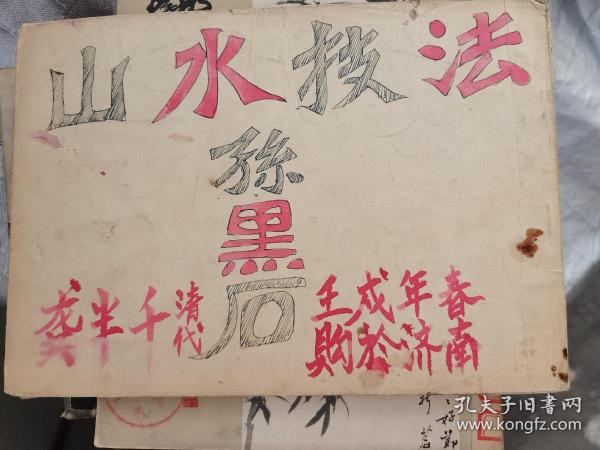 山水技法
孫黑石
清代
龚半千
壬戌年春
购於济南
孔夫子旧书网